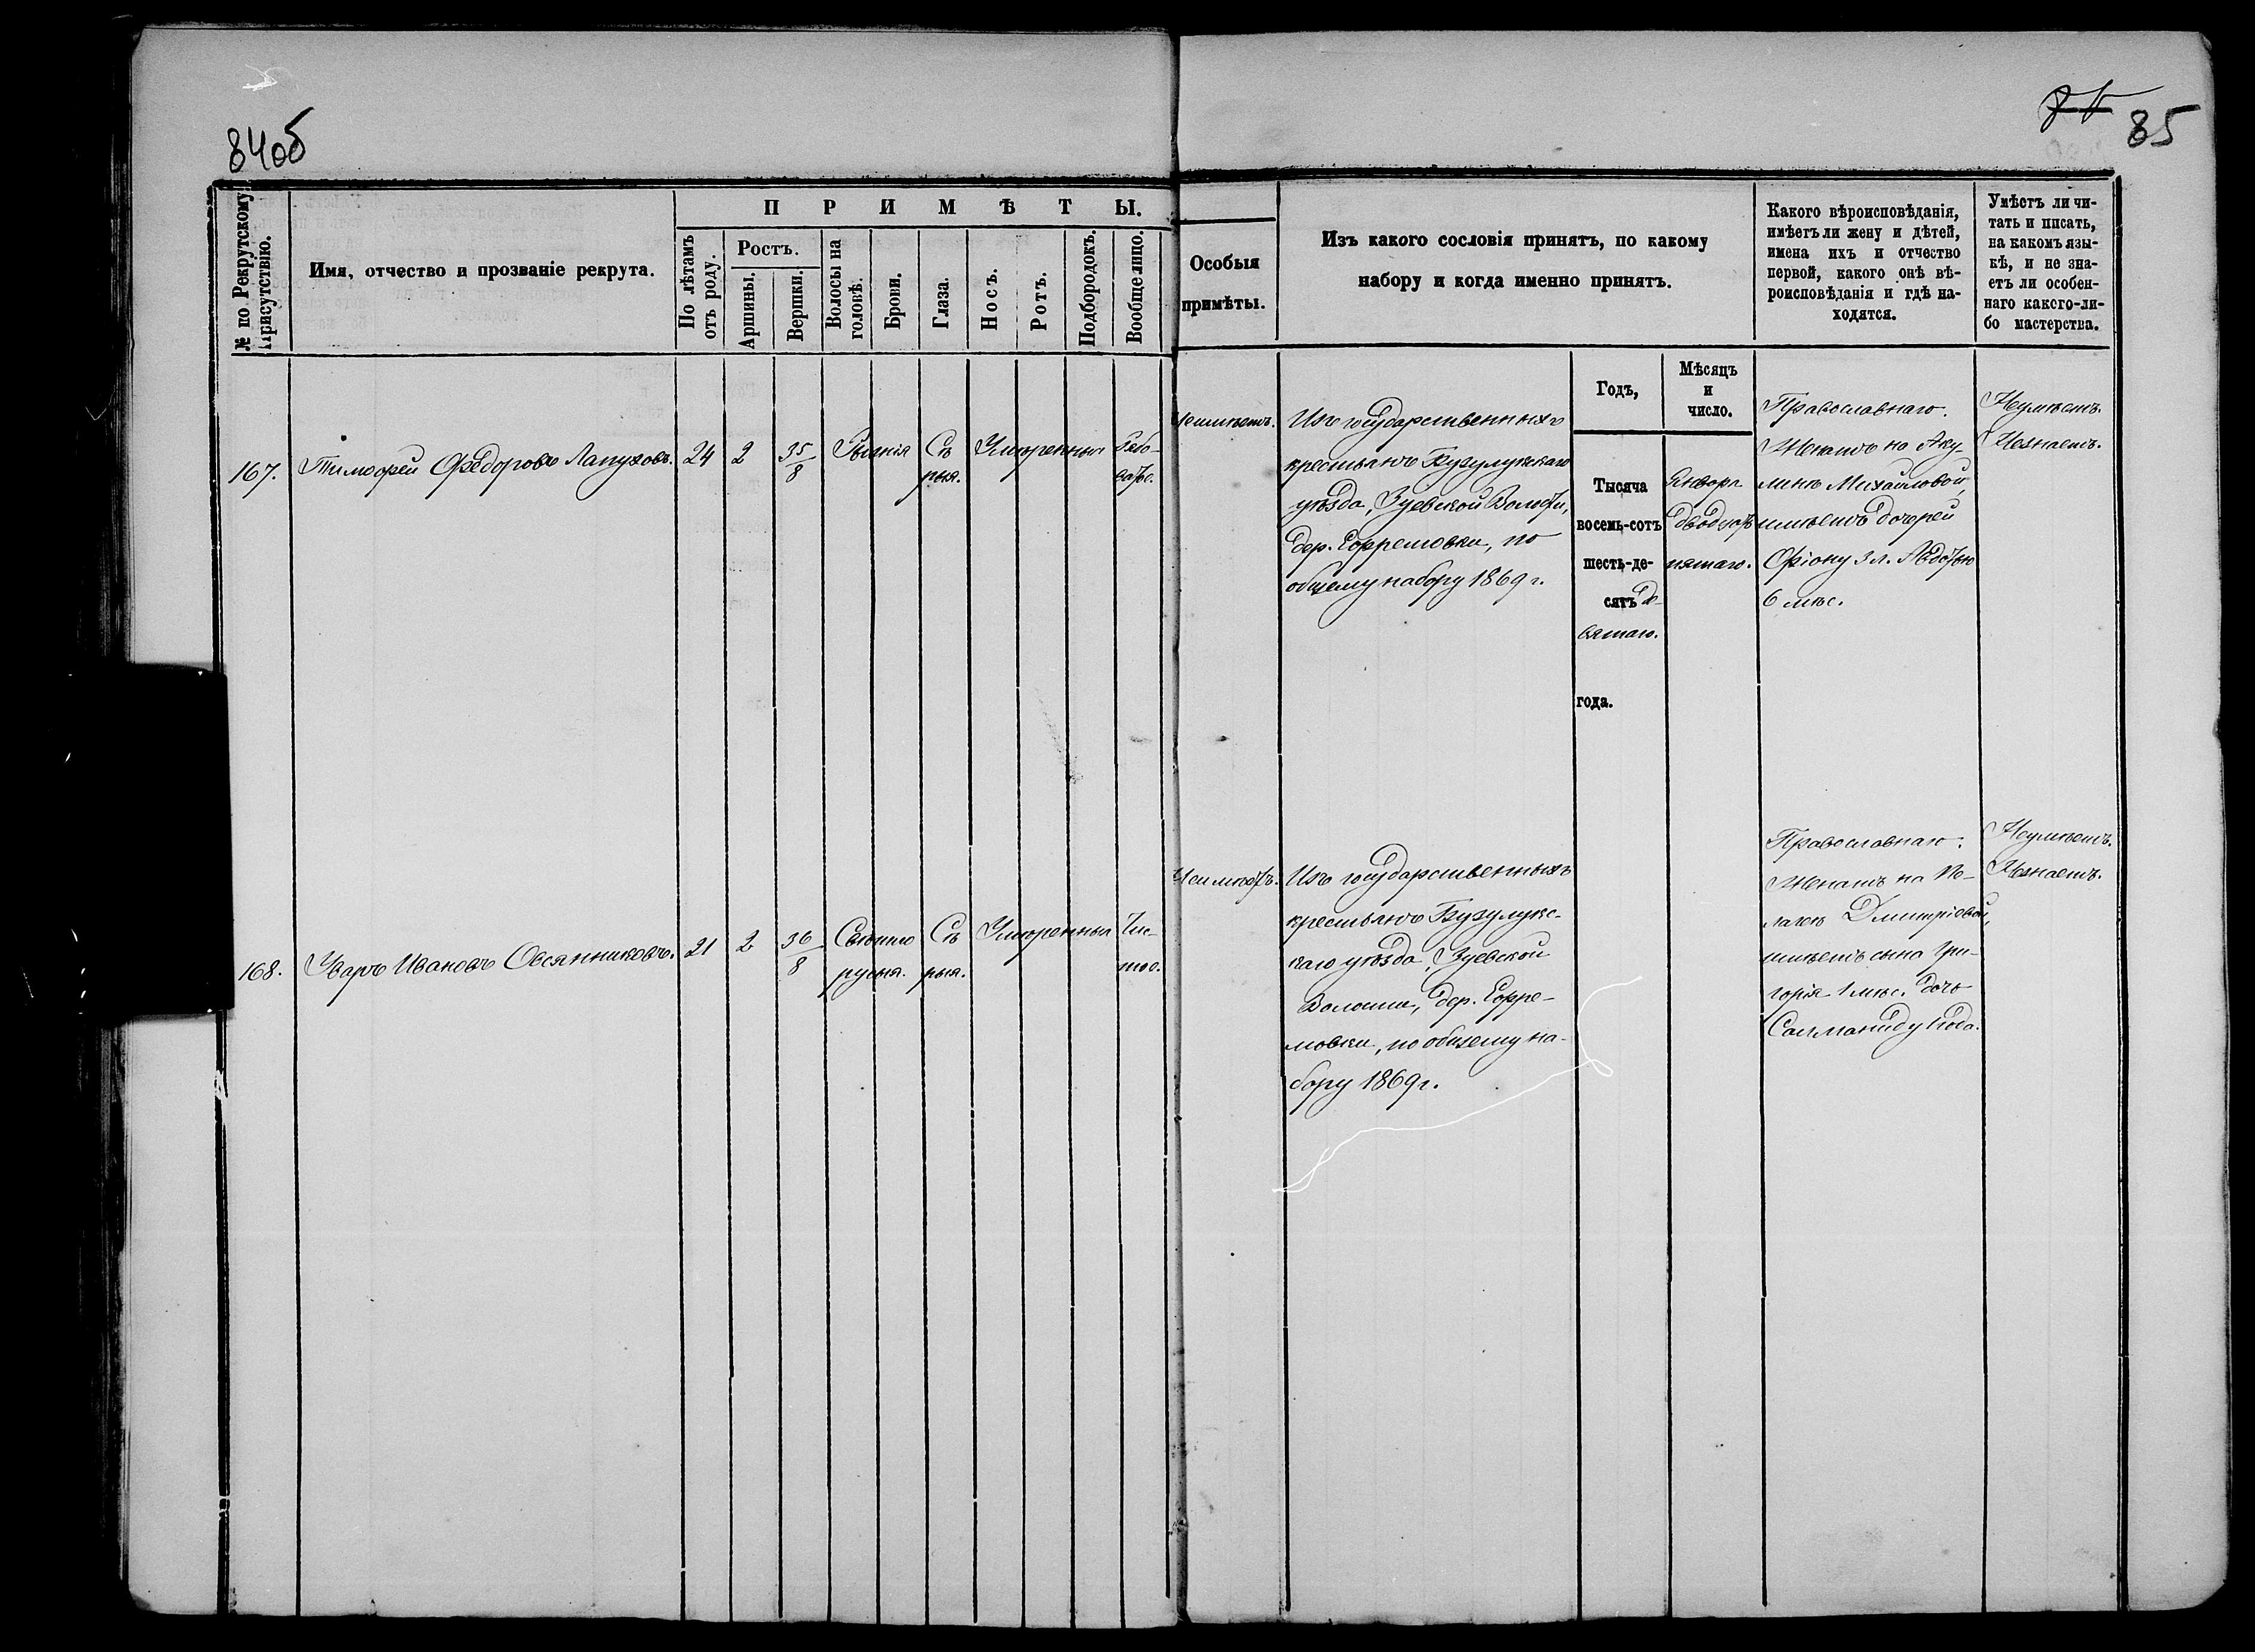 84об
85
№ по Рекрутскому
присутствію.
Имя, отчество и прозваніе рекрута.
П Р И М Ѣ Т Ы.
По лѣтамъ
отъ роду.
Ростъ.
Аршины.
Вершки.
Волосы на
головѣ.
Брови.
Глаза.
Носъ.
Ротъ.
Подбородокъ.
Вообще лицо.
Особыя
примѣты.
Изъ какого сословія принятъ, по какому
набору и когда именно принятъ.
Какого вѣроисповѣданія,
имѣетъ ли жену и дѣтей,
имена ихъ и отчество
первой, какого онѣ вѣ-
роисповѣданія и гдѣ на-
ходятся.
Умѣетъ ли чи-
тать и писать,
на какомъ язы-
кѣ, и не зна-
етъ ли особен-
наго какого-ли-
бо мастерства.
167.
Тимофей Ѳедоровъ Лапуховъ.
24
2
35/8
Сѣ
рыя.
Умѣренныя
Рябо-
ватое.
Неимѣетъ.
Изъ государственныхъ
крестьянъ Бузулукскаго
уѣзда, Зуевской Волости,
дер. Ефремовки, по
общему набору 1869 г.
Годъ,
Тысяча
восемь-сотъ
шесть-де-
сятъ де-
вятаго.
года.
Мѣсяцъ
и
число.
Января
двадцать
пятаго.
Православнаго.
Женатъ на Аку-
линѣ Михайловой,
имѣетъ дочерей
3 л. Авдотью
6 мѣс.
Неумѣетъ.
Незнаетъ.
168.
Уваръ Ивановъ Овсянниковъ.
21
2
36/8
Свѣтло
русыя.
Сѣ
рыя.
Умѣренныя
Чис-
тое.
Неимѣетъ.
Изъ государственныхъ
крестьянъ Бузулукс-
каго уѣзда, Зуевской
Волости, дер. Ефре-
мовки, по общему на-
бору 1869 г.
Православнаго.
Женатъ на Пе-
лагеѣ Дмитріевой,
имѣетъ сына Гри-
горія 1 мѣс. дочь
Саламаниду 1 года.
Неумѣетъ.
Незнаетъ.